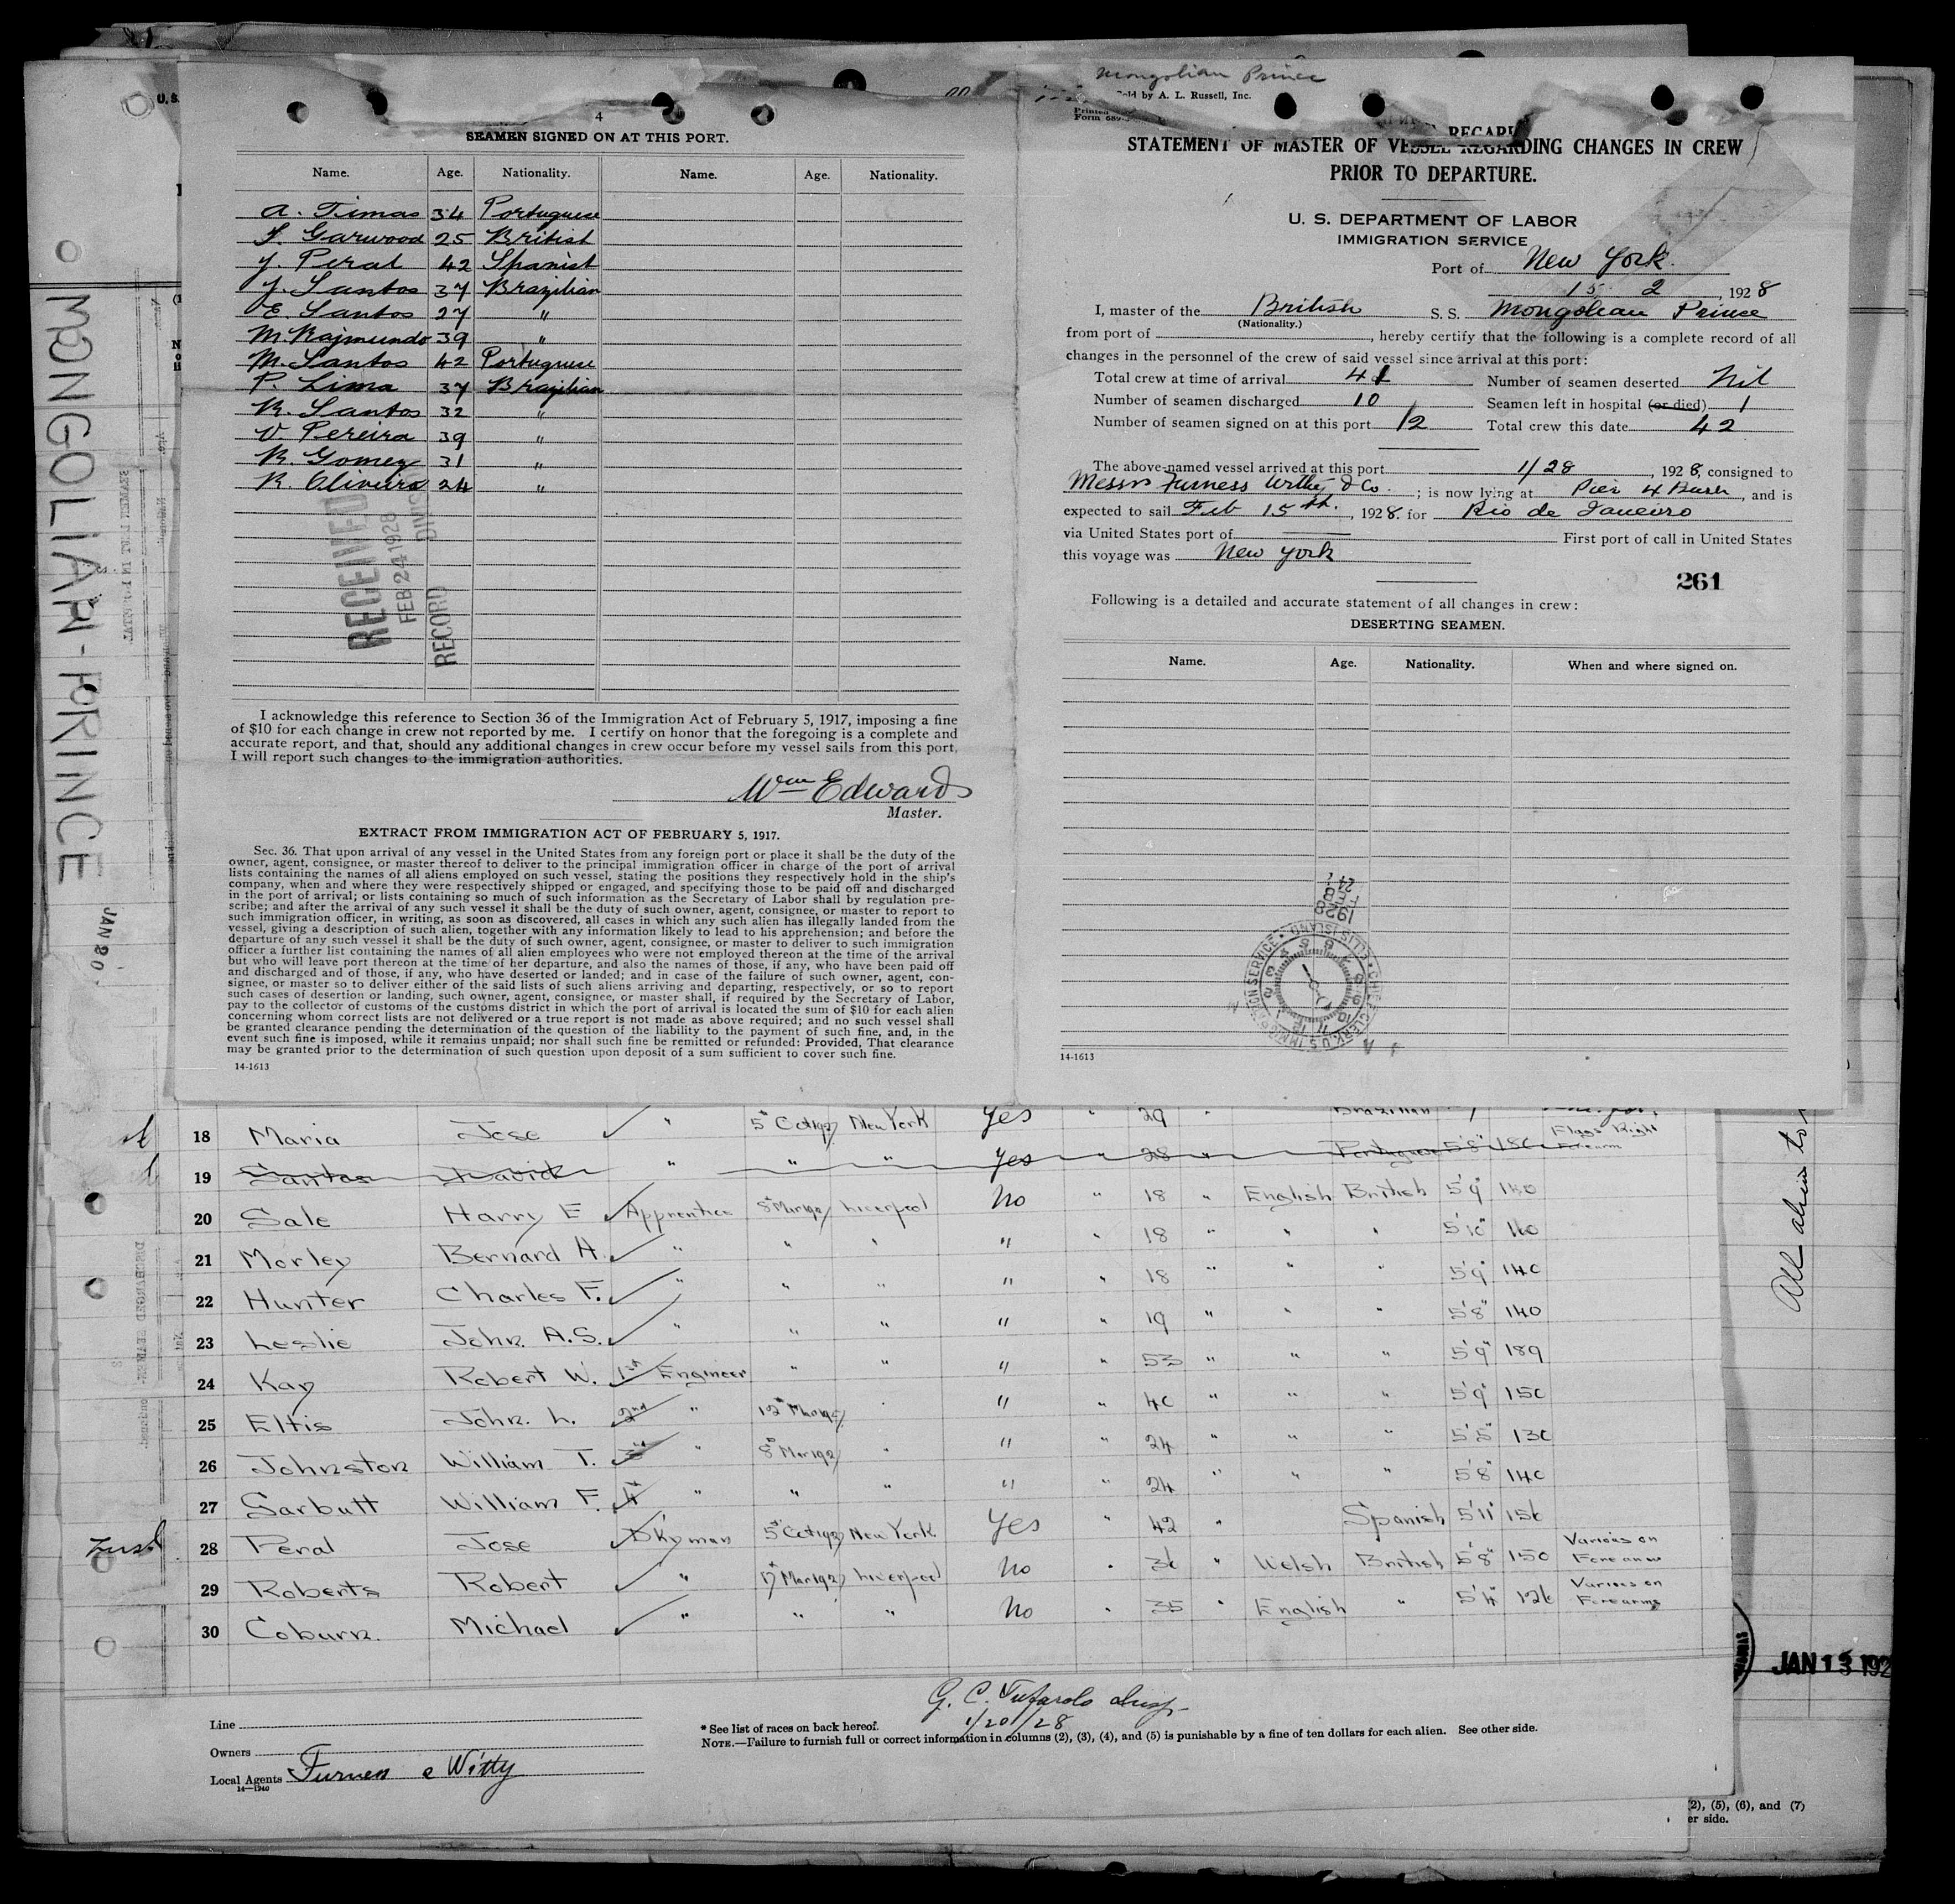 4
SEAMEN SIGNED ON AT THIS PORT.
Name. Age. Nationality. Name. Age. Nationality.
A. Timas 34 Portuguese
Garwood 25 British
J. Peral 42 Spanish
J. Santos 37 Brazilian
E. Santos 27 "
M. Rajmundo 39 "
M. Santos 42 Portuguese
P. Lima 37 Brazilian
R. Santos 32 "
V. Pereira 39 "
R. Gomez 31 "
R. Oliveira 24 "
RECEIVED
FEB 24 1928
RECORD DIVIS
I acknowledge this reference to Section 36 of the Immigration Act of February 5, 1917, imposing a fine
of $10 for each change in crew not reported by me. I certify on honor that the foregoing is a complete and
accurate report, and that, should any additional changes in crew occur before my vessel sails from this port,
I will report such changes to the immigration authorities.
Wm Edwards
Master.
EXTRACT FROM IMMIGRATION ACT OF FEBRUARY 5, 1917.
Sec. 36. That upon arrival of any vessel in the United States from any foreign port or place it shall be the duty of the
owner, agent, consignee, or master thereof to deliver to the principal immigration officer in charge of the port of arrival
lists containing the names of all aliens employed on such vessel, stating the positions they respectively hold in the ship's
company, when and where they were respectively shipped or engaged, and specifying those to be paid off and discharged
in the port of arrival; or lists containing so much of such information as the Secretary of Labor shall by regulation pre-
scribe; and after the arrival of any such vessel it shall be the duty of such owner, agent, consignee, or master to report to
such immigration officer, in writing, as soon as discovered, all cases in which any such alien has illegally landed from the
vessel, giving a description of such alien, together with any information likely to lead to his apprehension; and before the
departure of any such vessel it shall be the duty of such owner, agent, consignee, or master to deliver to such immigration
officer a further list containing the names of all alien employees who were not employed thereon at the time of the arrival
but who will leave port thereon at the time of her departure, and also the names of those, if any, who have been paid off
and discharged and of those, if any, who have deserted or landed; and in case of the failure of such owner, agent, con-
signee, or master so to deliver either of the said lists of such aliens arriving and departing, respectively, or so to report
such cases of desertion or landing, such owner, agent, consignee, or master shall, if required by the Secretary of Labor,
pay to the collector of customs of the customs district in which the port of arrival is located the sum of $10 for each alien
concerning whom correct lists are not delivered or a true report is not made as above required; and no such vessel shall
be granted clearance pending the determination of the question of the liability to the payment of such fine, and, in the
event such fine is imposed, while it remains unpaid; nor shall such fine be remitted or refunded: Provided, That clearance
may be granted prior to the determination of such question upon deposit of a sum sufficient to cover such fine.
14-1613
Mongolian Prince
Sold by A. L. Russell, Inc.
Printed
Form 689
STATEMENT OF MASTER OF VESSEL REGARDING CHANGES IN CREW
PRIOR TO DEPARTURE.
U. S. DEPARTMENT OF LABOR
IMMIGRATION SERVICE
Port of New York
15 2, 1928
I, master of the British S. S. Mongolian Prince
(Nationality.)
from port of , hereby certify that the following is a complete record of all
changes in the personnel of the crew of said vessel since arrival at this port:
Total crew at time of arrival 41 Number of seamen deserted Nil
Number of seamen discharged 10 Seamen left in hospital (or died) 1
Number of seamen signed on at this port 12 Total crew this date 42
The above-named vessel arrived at this port 1/28, 1928, consigned to
Messrs Furness Withy & Co. ; is now lying at Pier 4 Bush, and is
expected to sail Feb 15th., 1928. for Rio de Janeiro
via United States port of First port of call in United States
this voyage was New York
261
Following is a detailed and accurate statement of all changes in crew:
DESERTING SEAMEN.
Name. Age. Nationality. When and where signed on.
1928
FEB
24
14-1613
MONGOLIAN-PRINCE
JAN 20
18 Maria Jose " 5th Oct 1927 New York Yes " 29 " Brazilian
19 Santos David " " " Yes " 28 " Portuguese 5'8" 180 Flags Right Forearm
20 Sale Harry E Apprentice 8th Mar 1927 Liverpool No " 18 " English British 5'9" 140
21 Morley Bernard H. " " " " " 18 " " " 5'10" 160
22 Hunter Charles F. " " " " " 18 " " " 5'9" 140
23 Leslie John. A.S. " " " " " 19 " " " 5'8" 140
24 Kay Robert W. 1st Engineer " " " " 53 " " " 5'9" 189
25 Eltis John. L. 2nd " 12th Mar 1927 " " " 40 " " " 5'9" 150
26 Johnston William T. 3rd " 8th Mar 1927 " " " 24 " " " 5'5" 130
27 Garbutt William F. 4th " " " " " 24 " " " 5'8" 140
28 Peral Jose D'kyman 5th Oct 1927 New York Yes " 42 " Spanish 5'11" 156
29 Roberts Robert " 17th Mar 1927 Liverpool No " 36 " Welsh British 5'8" 150 Various on Forearms
30 Coburn. Michael " " " No " 35 " English " 5'4" 126 Various on Forearms
All alien to
JAN 13 192
G. C. Tufarolo Insp.
1/20/28
Line
Owners
Local Agents Furness & Withy
14-1940
* See list of races on back hereof.
NOTE.—Failure to furnish full or correct information in columns (2), (3), (4), and (5) is punishable by a fine of ten dollars for each alien. See other side.
(2), (5), (6), and (7)
er side.